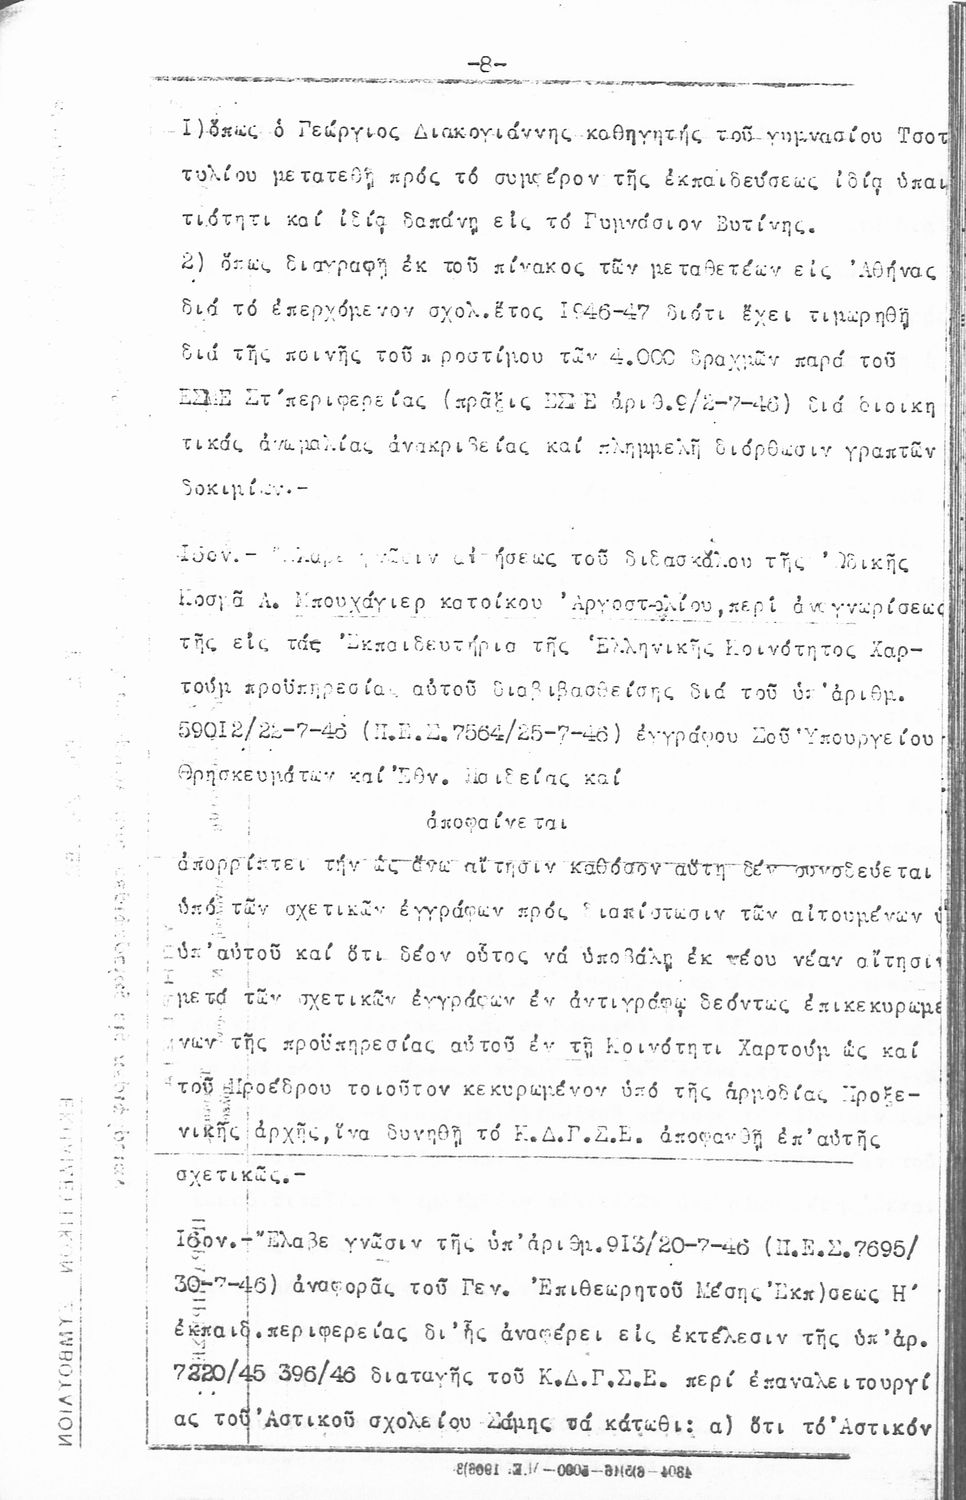 -8-
I)ὅπως ὁ Γεώργιος Διακογιάννης καθηγητής τοῦ γυμνασίου Τσοτ
τυλίου μετατεθῇ πρός τό συμφέρον τῆς ἐκπαιδεύσεως ἰδίᾳ ὑπαι
τιότητι καί ἰδίᾳ δαπάνῃ εἰς τό Γυμνάσιον Βυτίνης.
2) ὅπως διαγραφῇ ἐκ τοῦ πίνακος τῶν μεταθετέων εἰς Ἀθήνας
διά τό ἐπερχόμενον σχολ.ἔτος I946-47 διότι ἔχει τιμωρηθῇ
διά τῆς ποινῆς τοῦ προστίμου τῶν 4.000 δραχμῶν παρά τοῦ
ΕΣΜΕ Στ'περιφερείας (πρᾶξις ΕΣΜΕ ἀριθ.9/2-7-46) διά διοικη
τικάς ἀνωμαλίας ἀνακριβείας καί πλημμελῆ διόρθωσιν γραπτῶν
δοκιμίων.-
I5ον.- Ἔλαβε γνῶσιν αἰτήσεως τοῦ διδασκάλου τῆς Ὠδικῆς
Κοσμᾶ Α. Μπουχάγιερ κατοίκου Ἀργοστολίου,περί ἀναγνωρίσεως
τῆς εἰς τάς Ἐκπαιδευτήρια τῆς Ἑλληνικῆς Κοινότητος Χαρ-
τούμ προϋπηρεσίας αὐτοῦ διαβιβασθείσης διά τοῦ ὑπ'ἀριθμ.
590I2/22-7-46 (Π.Ε.Σ.7564/25-7-46) ἐγγράφου Σοῦ Ὑπουργείου
Θρησκευμάτων καί Ἐθν. Παιδείας καί
ἀποφαίνεται
ἀπορρίπτει τήν ὡς ἄνω αἴτησιν καθόσον αὕτη δέν συνοδεύεται
ὑπό τῶν σχετικῶν ἐγγράφων πρός διαπίστωσιν τῶν αἰτουμένων ὑ
ὑπ'αὐτοῦ καί ὅτι δέον οὗτος νά ὑποβάλῃ ἐκ νέου νέαν αἴτησιν
μετά τῶν σχετικῶν ἐγγράφων ἐν ἀντιγράφῳ δεόντως ἐπικεκυρωμέ
νων τῆς προϋπηρεσίας αὐτοῦ ἐν τῇ Κοινότητι Χαρτούμ ὡς καί
τοῦ Προέδρου τοιοῦτον κεκυρωμένον ὑπό τῆς ἁρμοδίας Προξε-
νικῆς ἀρχῆς,ἵνα δυνηθῇ τό Κ.Δ.Γ.Σ.Ε. ἀποφανθῇ ἐπ'αὐτῆς
σχετικῶς.-
I6ον.-Ἔλαβε γνῶσιν τῆς ὑπ'ἀριθμ.9I3/20-7-46 (Π.Ε.Σ.7695/
30-7-46) ἀναφορᾶς τοῦ Γεν. Ἐπιθεωρητοῦ Μέσης Ἐκπ)σεως Η'
ἐκπαιδ.περιφερείας δι'ἧς ἀναφέρει εἰς ἐκτέλεσιν τῆς ὑπ'ἀρ.
7220/45 396/46 διαταγῆς τοῦ Κ.Δ.Γ.Σ.Ε. περί ἐπαναλειτουργί
ας τοῦ Ἀστικοῦ σχολείου Σάμης τά κάτωθι: α) ὅτι τό Ἀστικόν